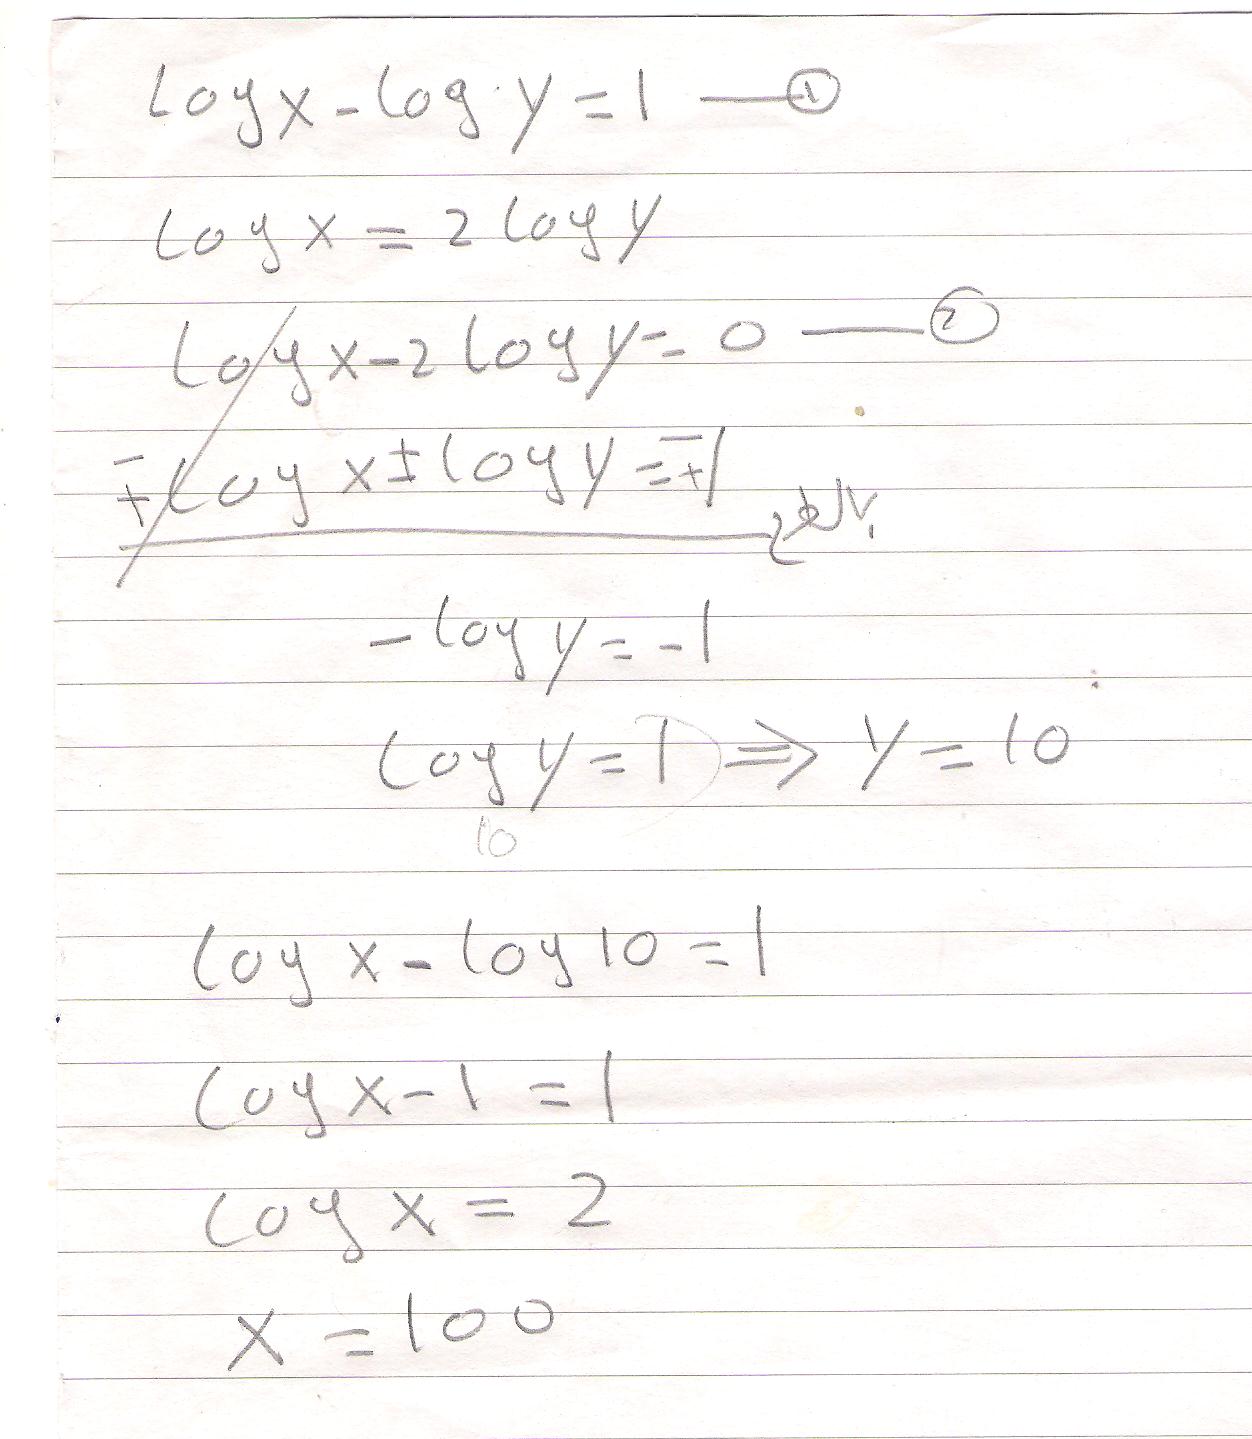 log x - log y = 1 — ①
log x = 2 log y
log x - 2 log y = 0 — ②
∓ log x ± log y = ∓ 1 بالطرح
- log y = - 1
log y = 1 ⇒ y = 10
10
log x - log 10 = 1
log x - 1 = 1
log x = 2
x = 100